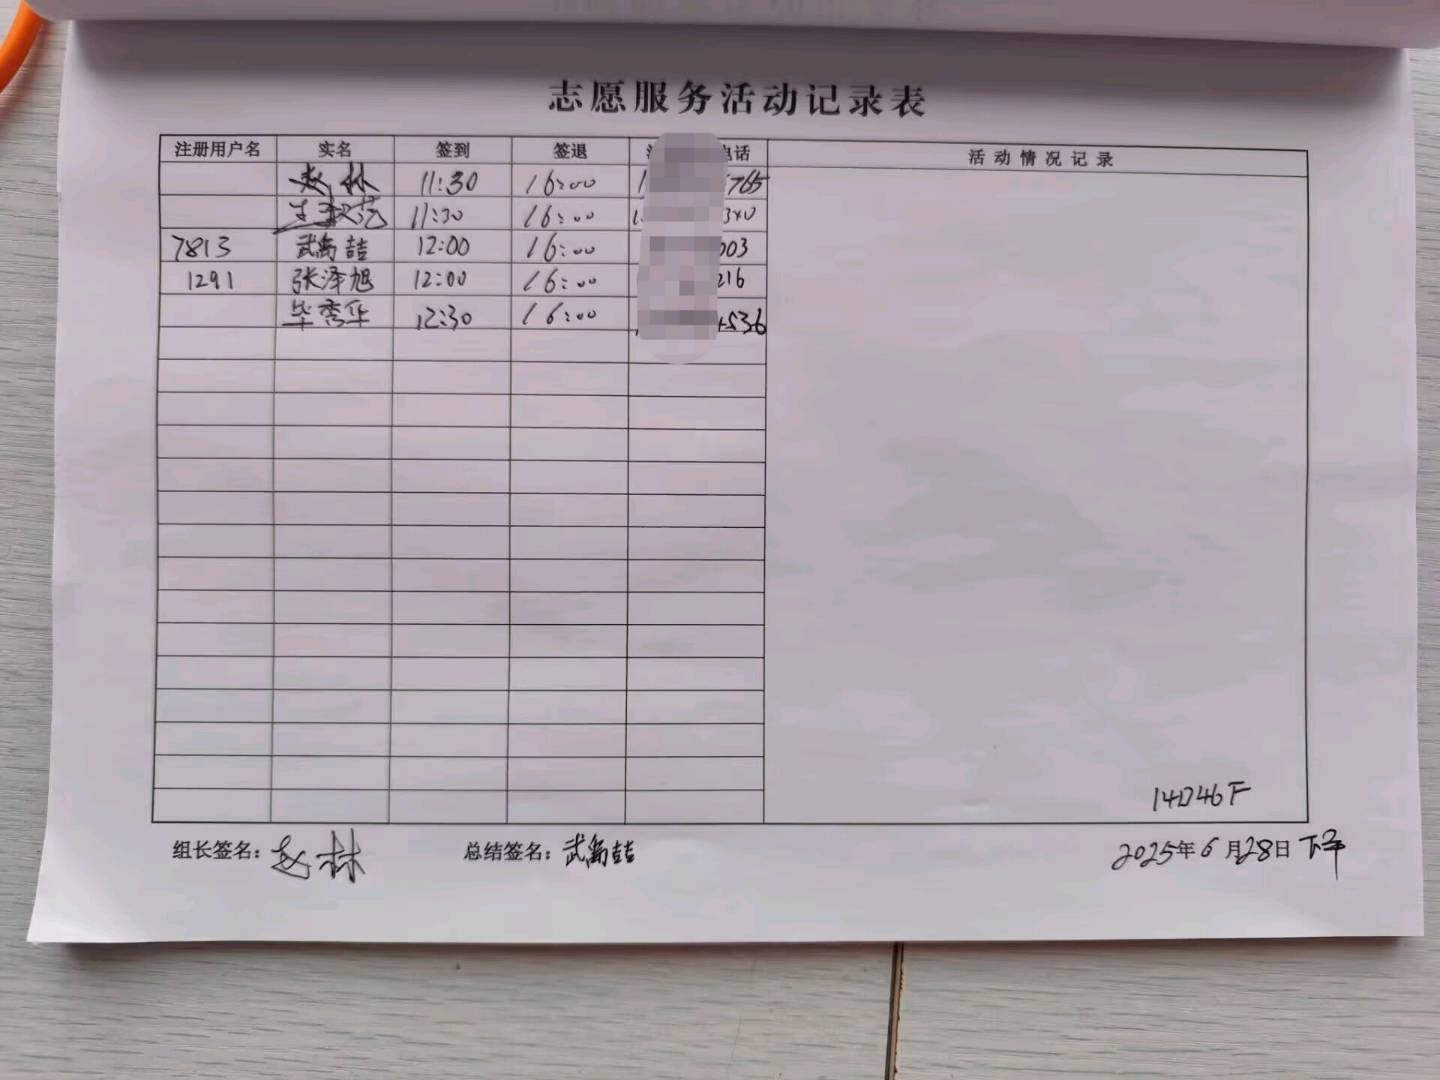 志愿服务活动记录表
注册用户名 实名 签到 签退 电话 活动情况记录
赵林 11:30 16:00 765
11:30 16:00 340
7813 武禹喆 12:00 16:00 003
1291 张泽旭 12:00 16:00 216
毕秀华 12:30 16:00 4536
14046F
组长签名：赵林 总结签名：武禹喆 2025年6月28日 下午